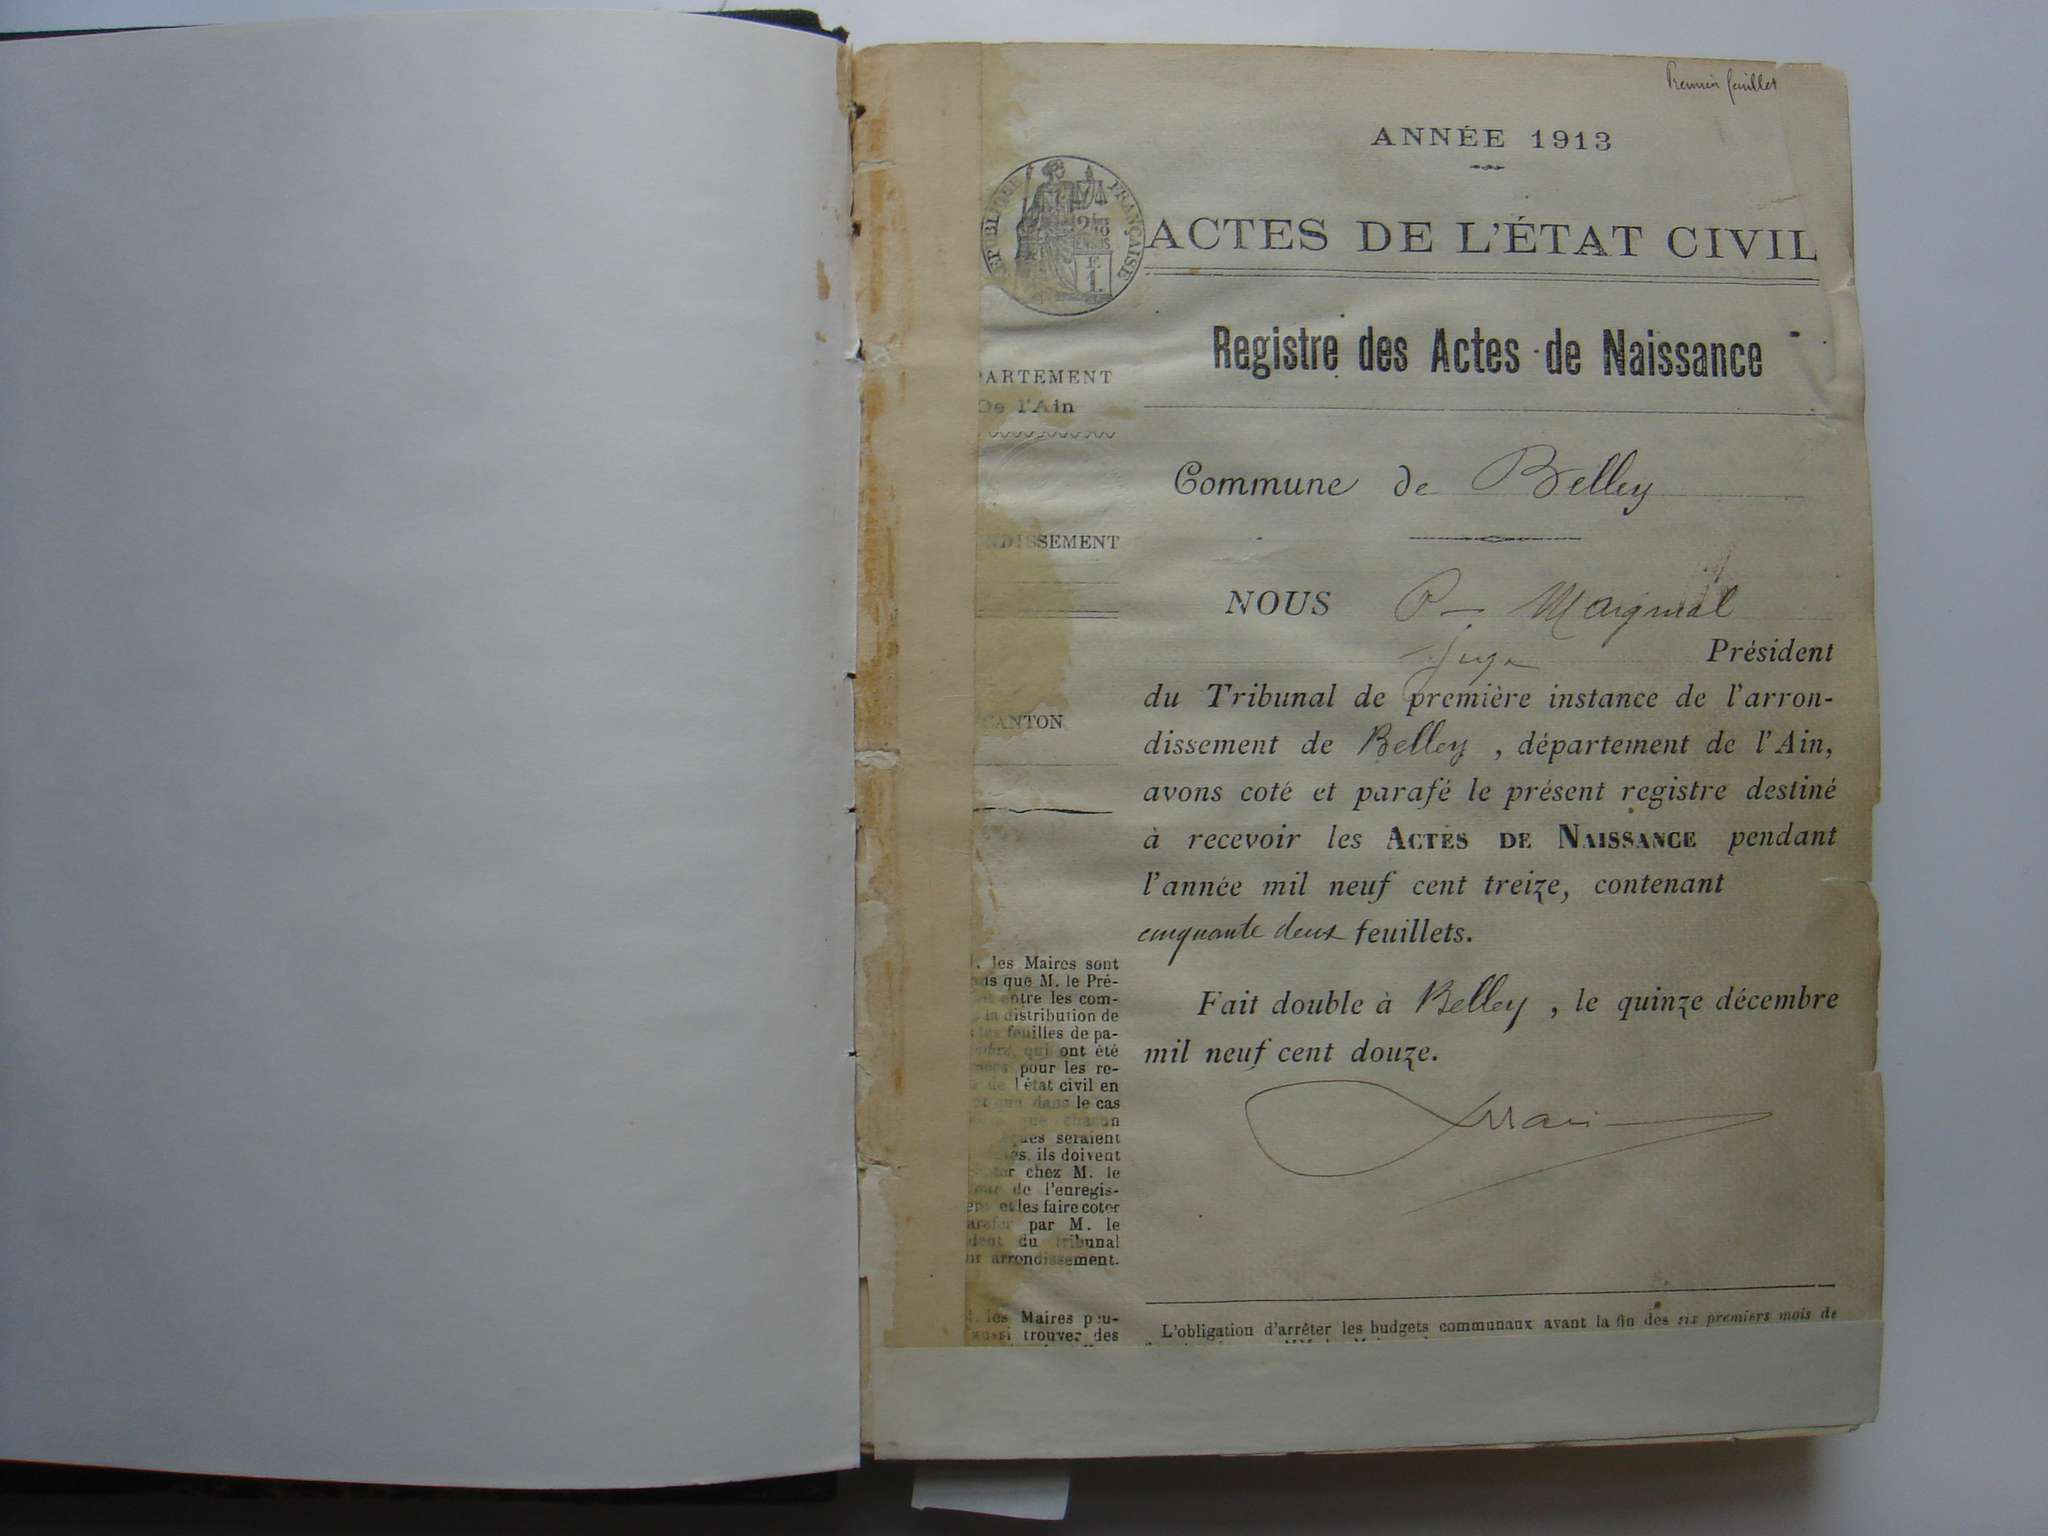 Premier feuillet
ANNÉE 1913
RÉPUBLIQUE FRANÇAISE
F
1.
ACTES DE L'ÉTAT CIVIL
Registre des Actes de Naissance
PARTEMENT
De l'Ain
Commune de Belley
NDISSEMENT
NOUS P
juge Président
CANTON
du Tribunal de première instance de l'arron-
dissement de Belley, département de l'Ain,
avons coté et parafé le présent registre destiné
à recevoir les ACTES DE NAISSANCE pendant
l'année mil neuf cent treize, contenant
cinquante deux feuillets.
Fait double à Belley, le quinze décembre
mil neuf cent douze.
les Maires sont
que M. le Pré-
entre les com-
la distribution de
feuilles de pa-
qui ont été
pour les re-
de l'état civil en
que dans le cas
que chacun
seraient
ils doivent
chez M. le
de l'enregis-
et les faire coter
par M. le
du tribunal
arrondissement.
les Maires peu-
aussi trouver des
L'obligation d'arrêter les budgets communaux avant la fin des six premiers mois de